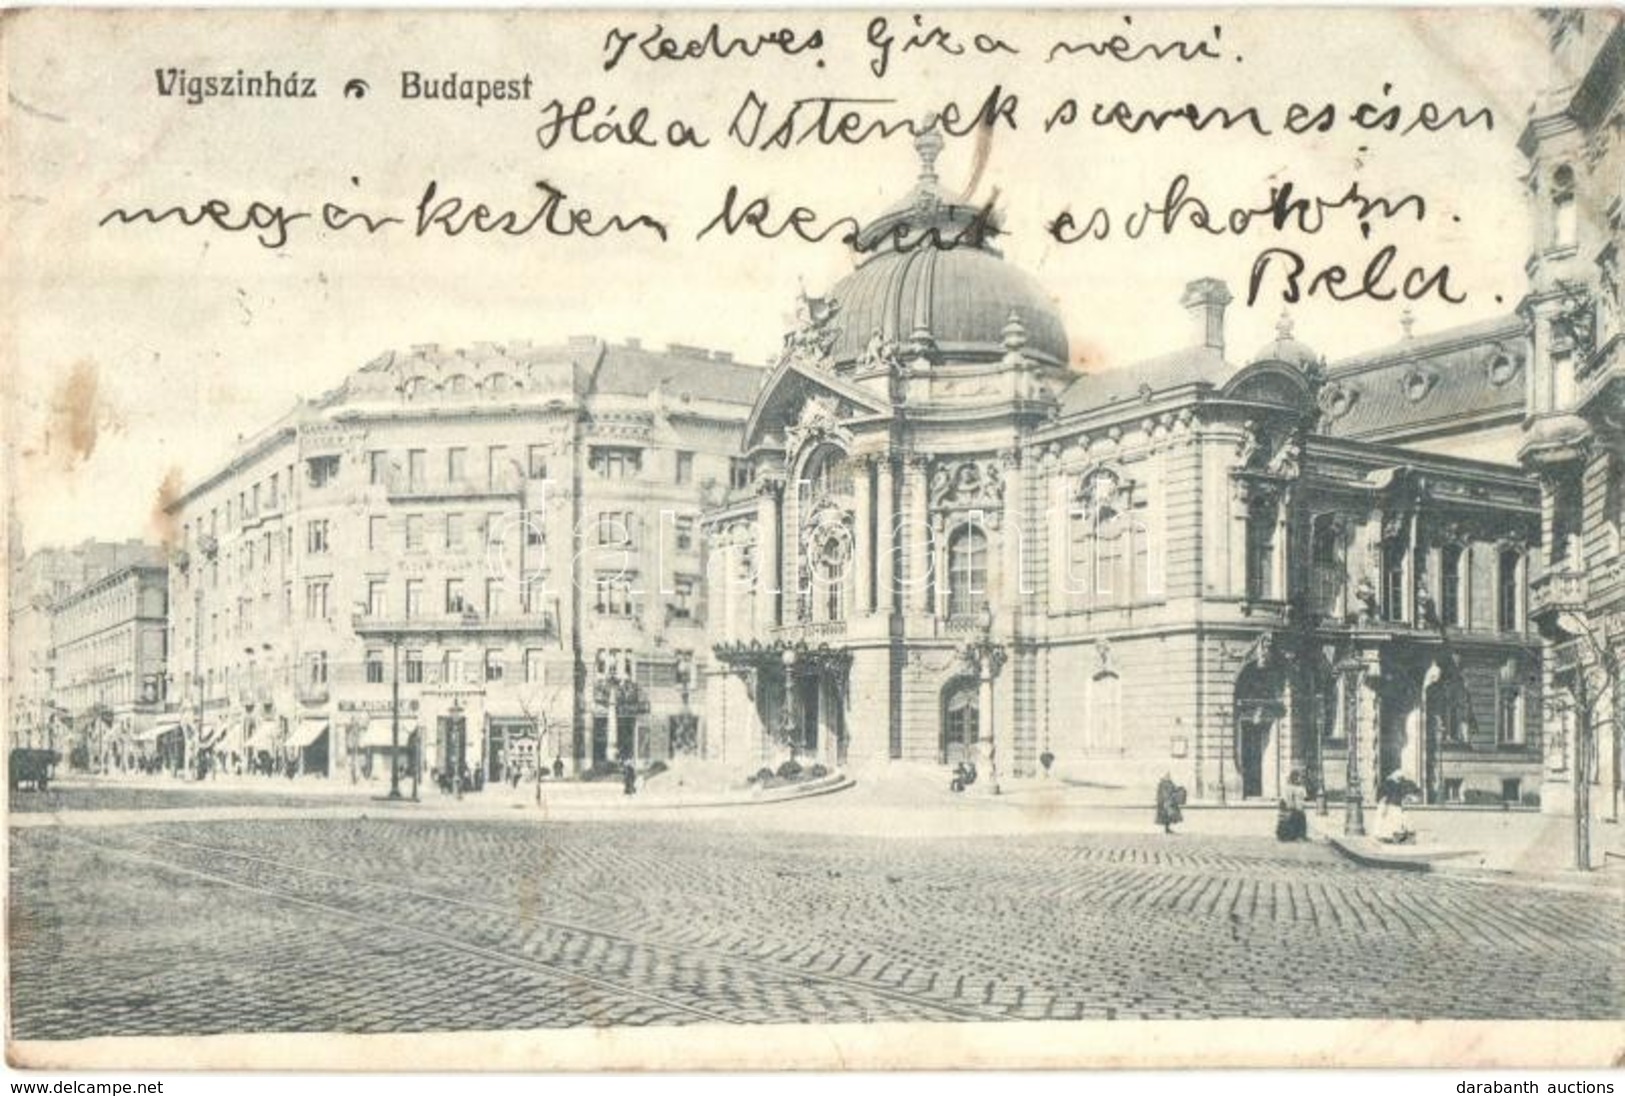 Vigszinház Budapest
Kedves Giza néni.
Hála Istenek szerencsésen
meg érkestem kezeit csokolom.
Béla.
darabanth
www.delcampe.net
darabanth auctions